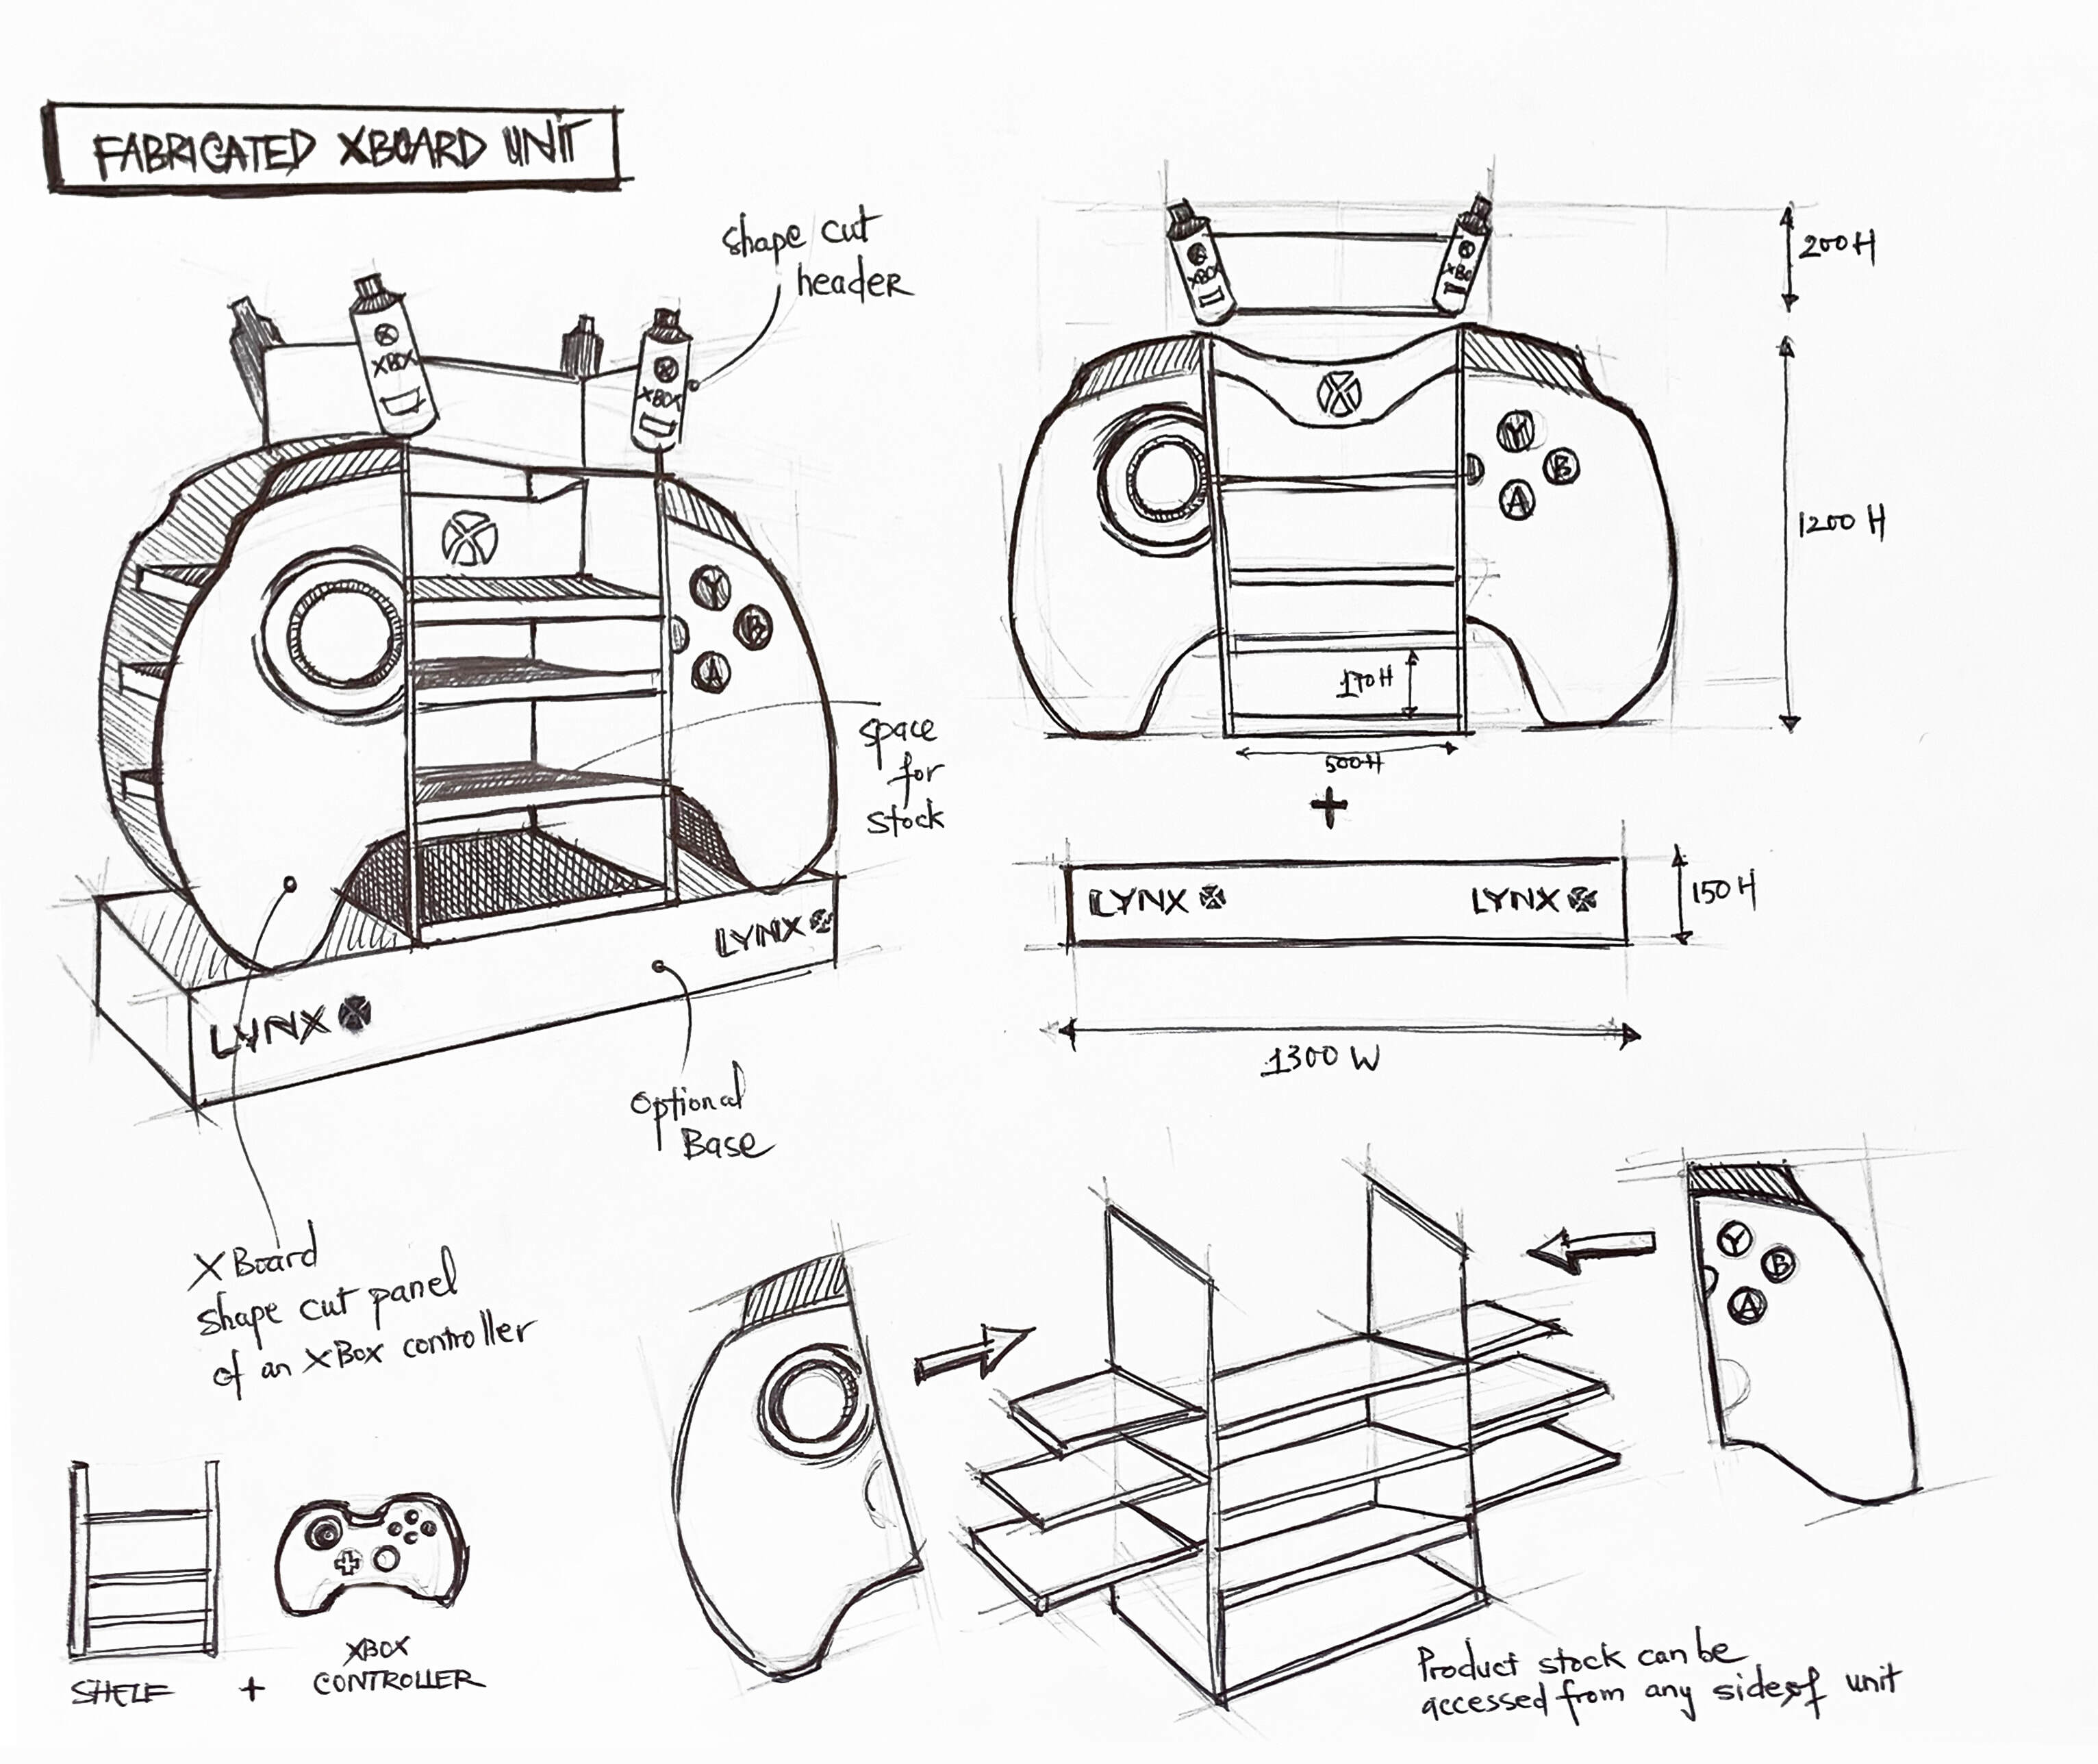 FABRICATED XBOARD UNIT
shape cut
header
XBOX
XBOX
Y
B
A
space
for
stock
LYNX
LYNX
Optional
Base
XBoard
shape cut panel
of an XBox controller
SHELF
+
XBOX
CONTROLLER
XBOX
XBO
200H
Y
B
A
1200 H
170H
500H
+
LYNX
LYNX
150H
1300 W
Y
B
A
Product stock can be
accessed from any sides of unit